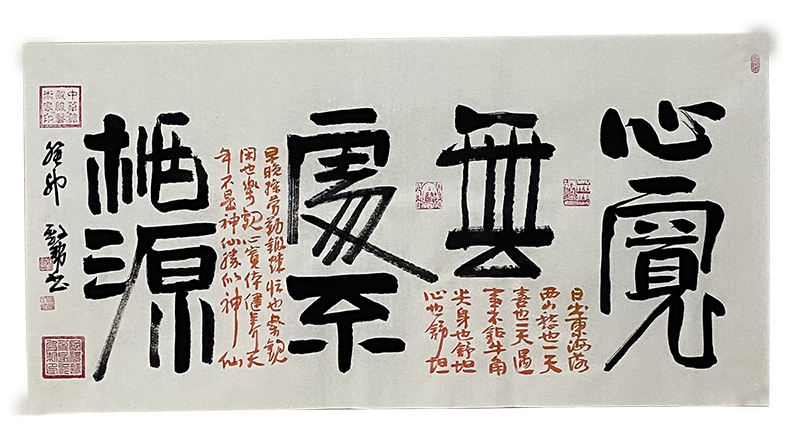 心寬
無
處不
桃源
日出東海落
西山愁也一天
喜也一天遇
事不鉆牛角
尖身也舒坦
心也舒坦
早晚操劳勤鍛煉忙也樂観
閑也樂観心寬体健養天
年不是神仙勝似神仙
癸卯